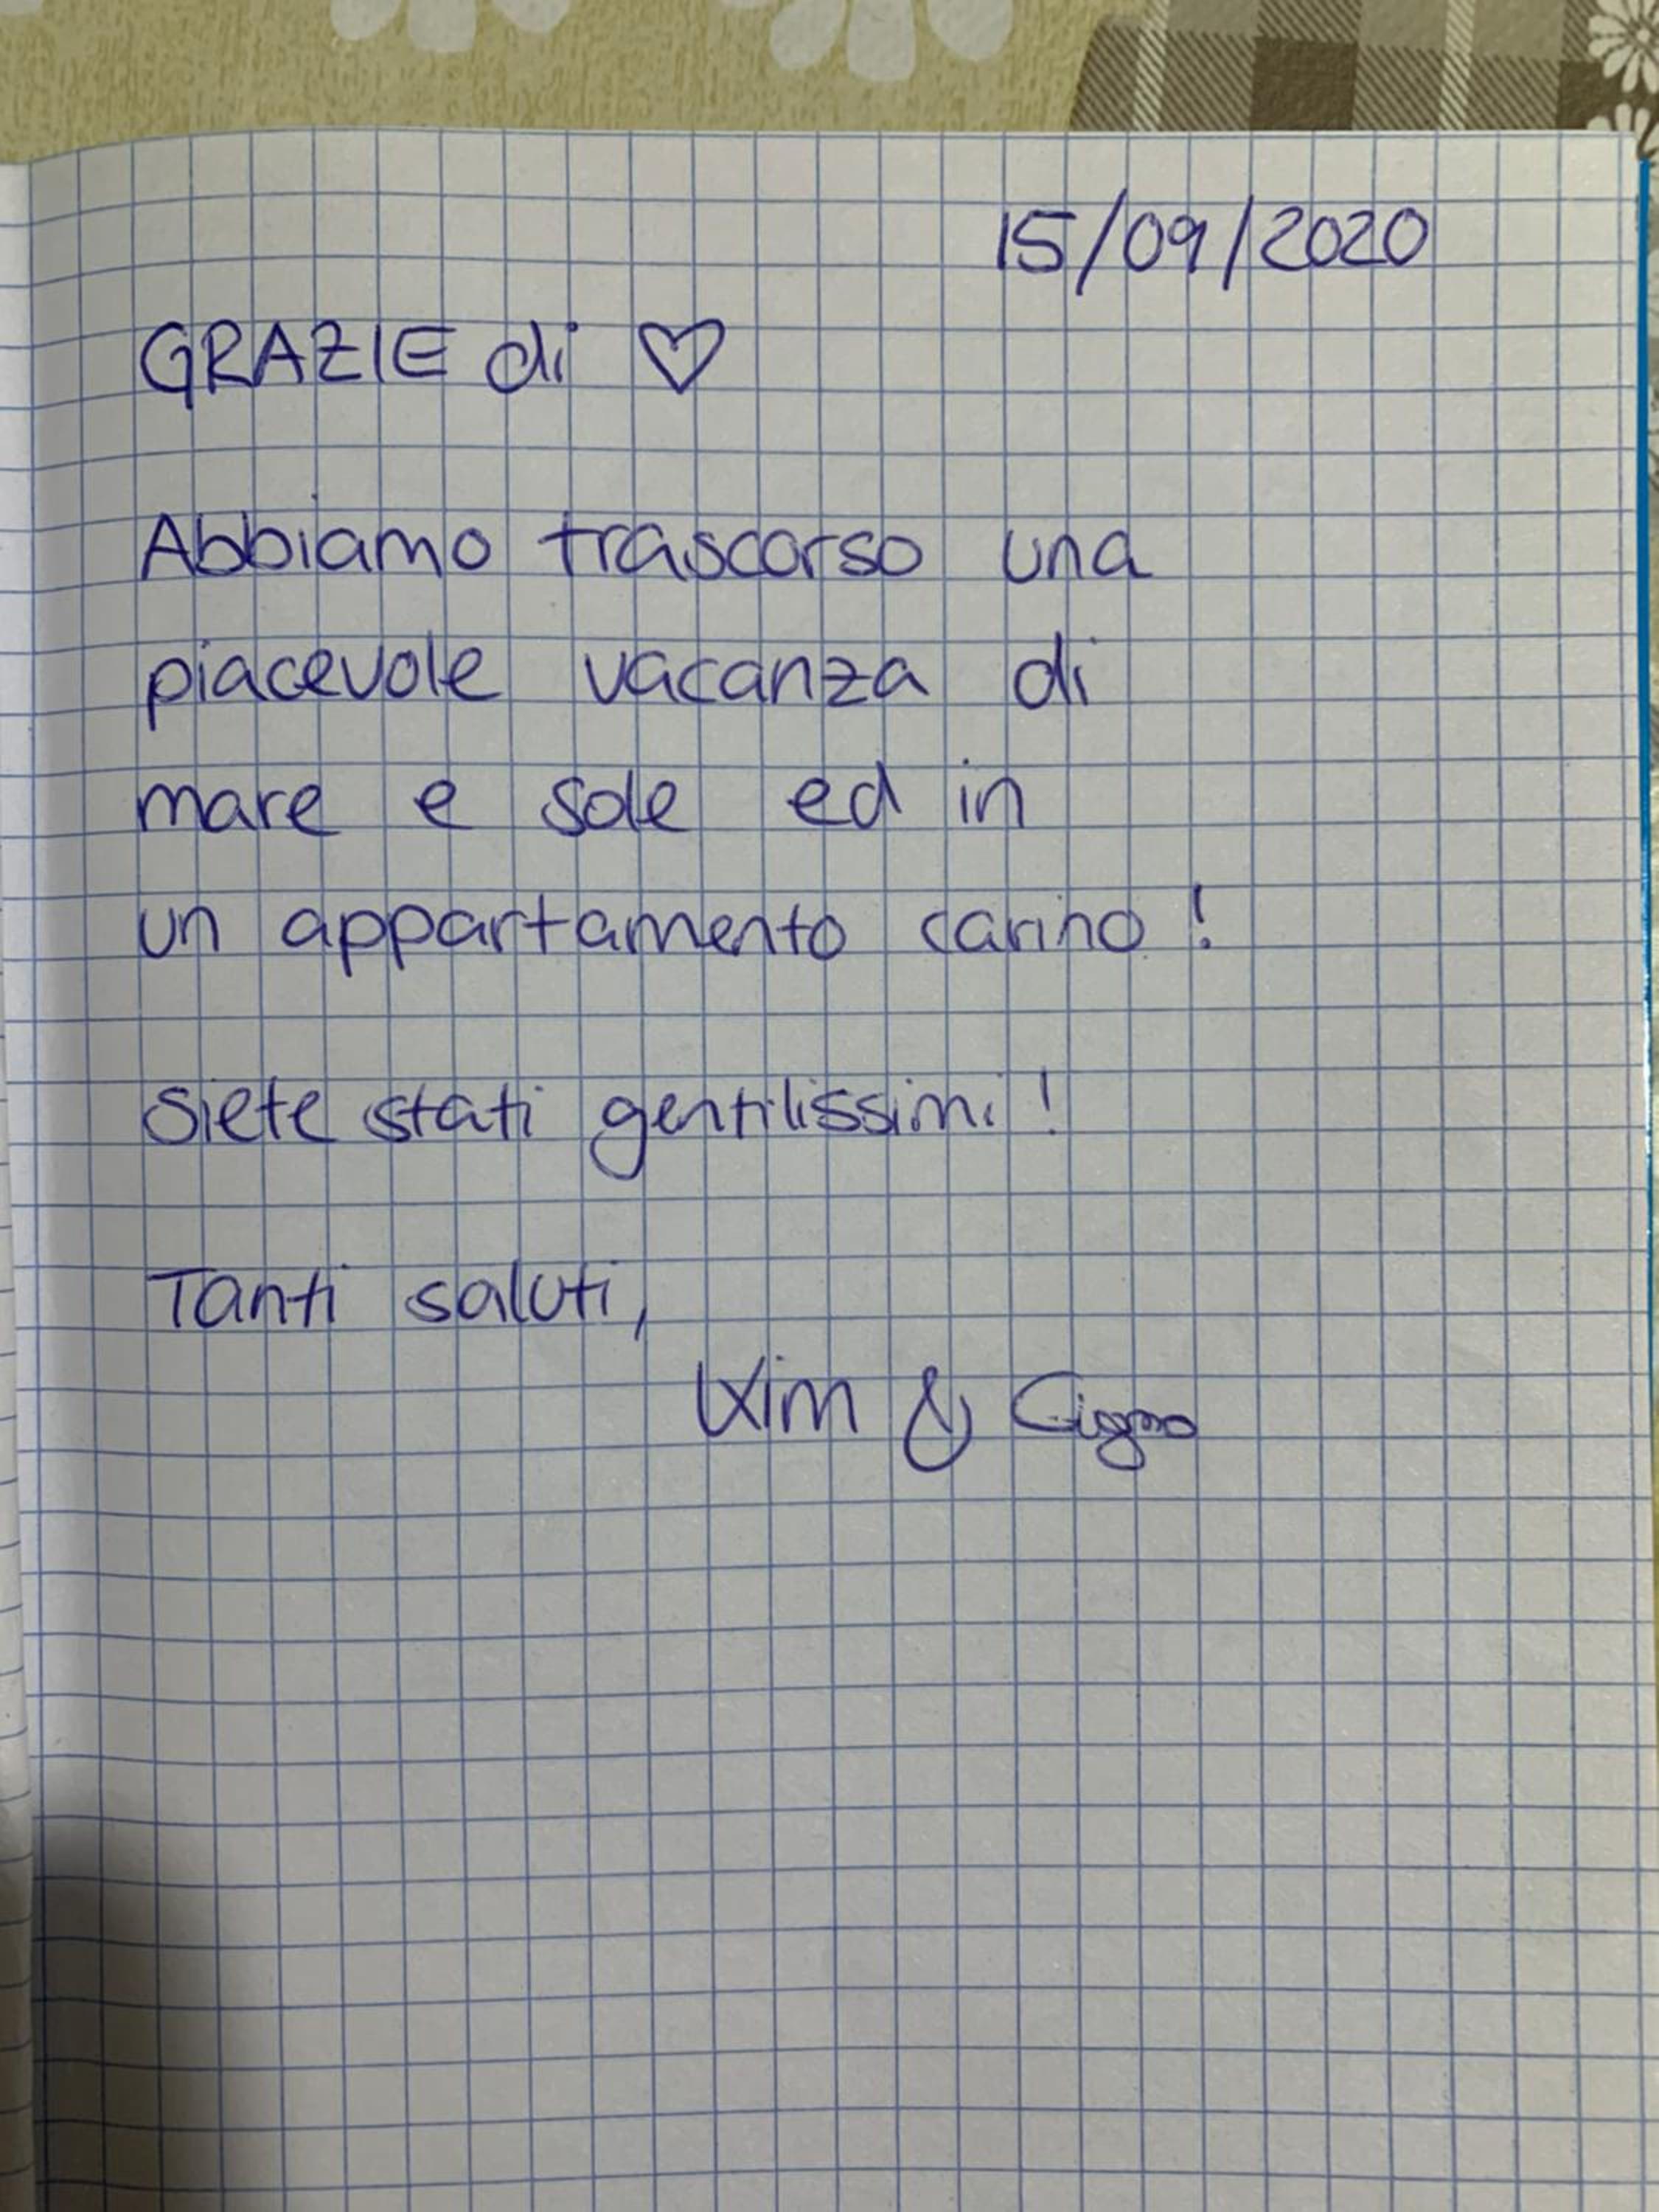 15/09/2020
GRAZIE di ♡
Abbiamo trascorso una
piacevole vacanza di
mare e sole ed in
un appartamento carino!
Siete stati gentilissimi!
Tanti saluti,
Kim & Cigno